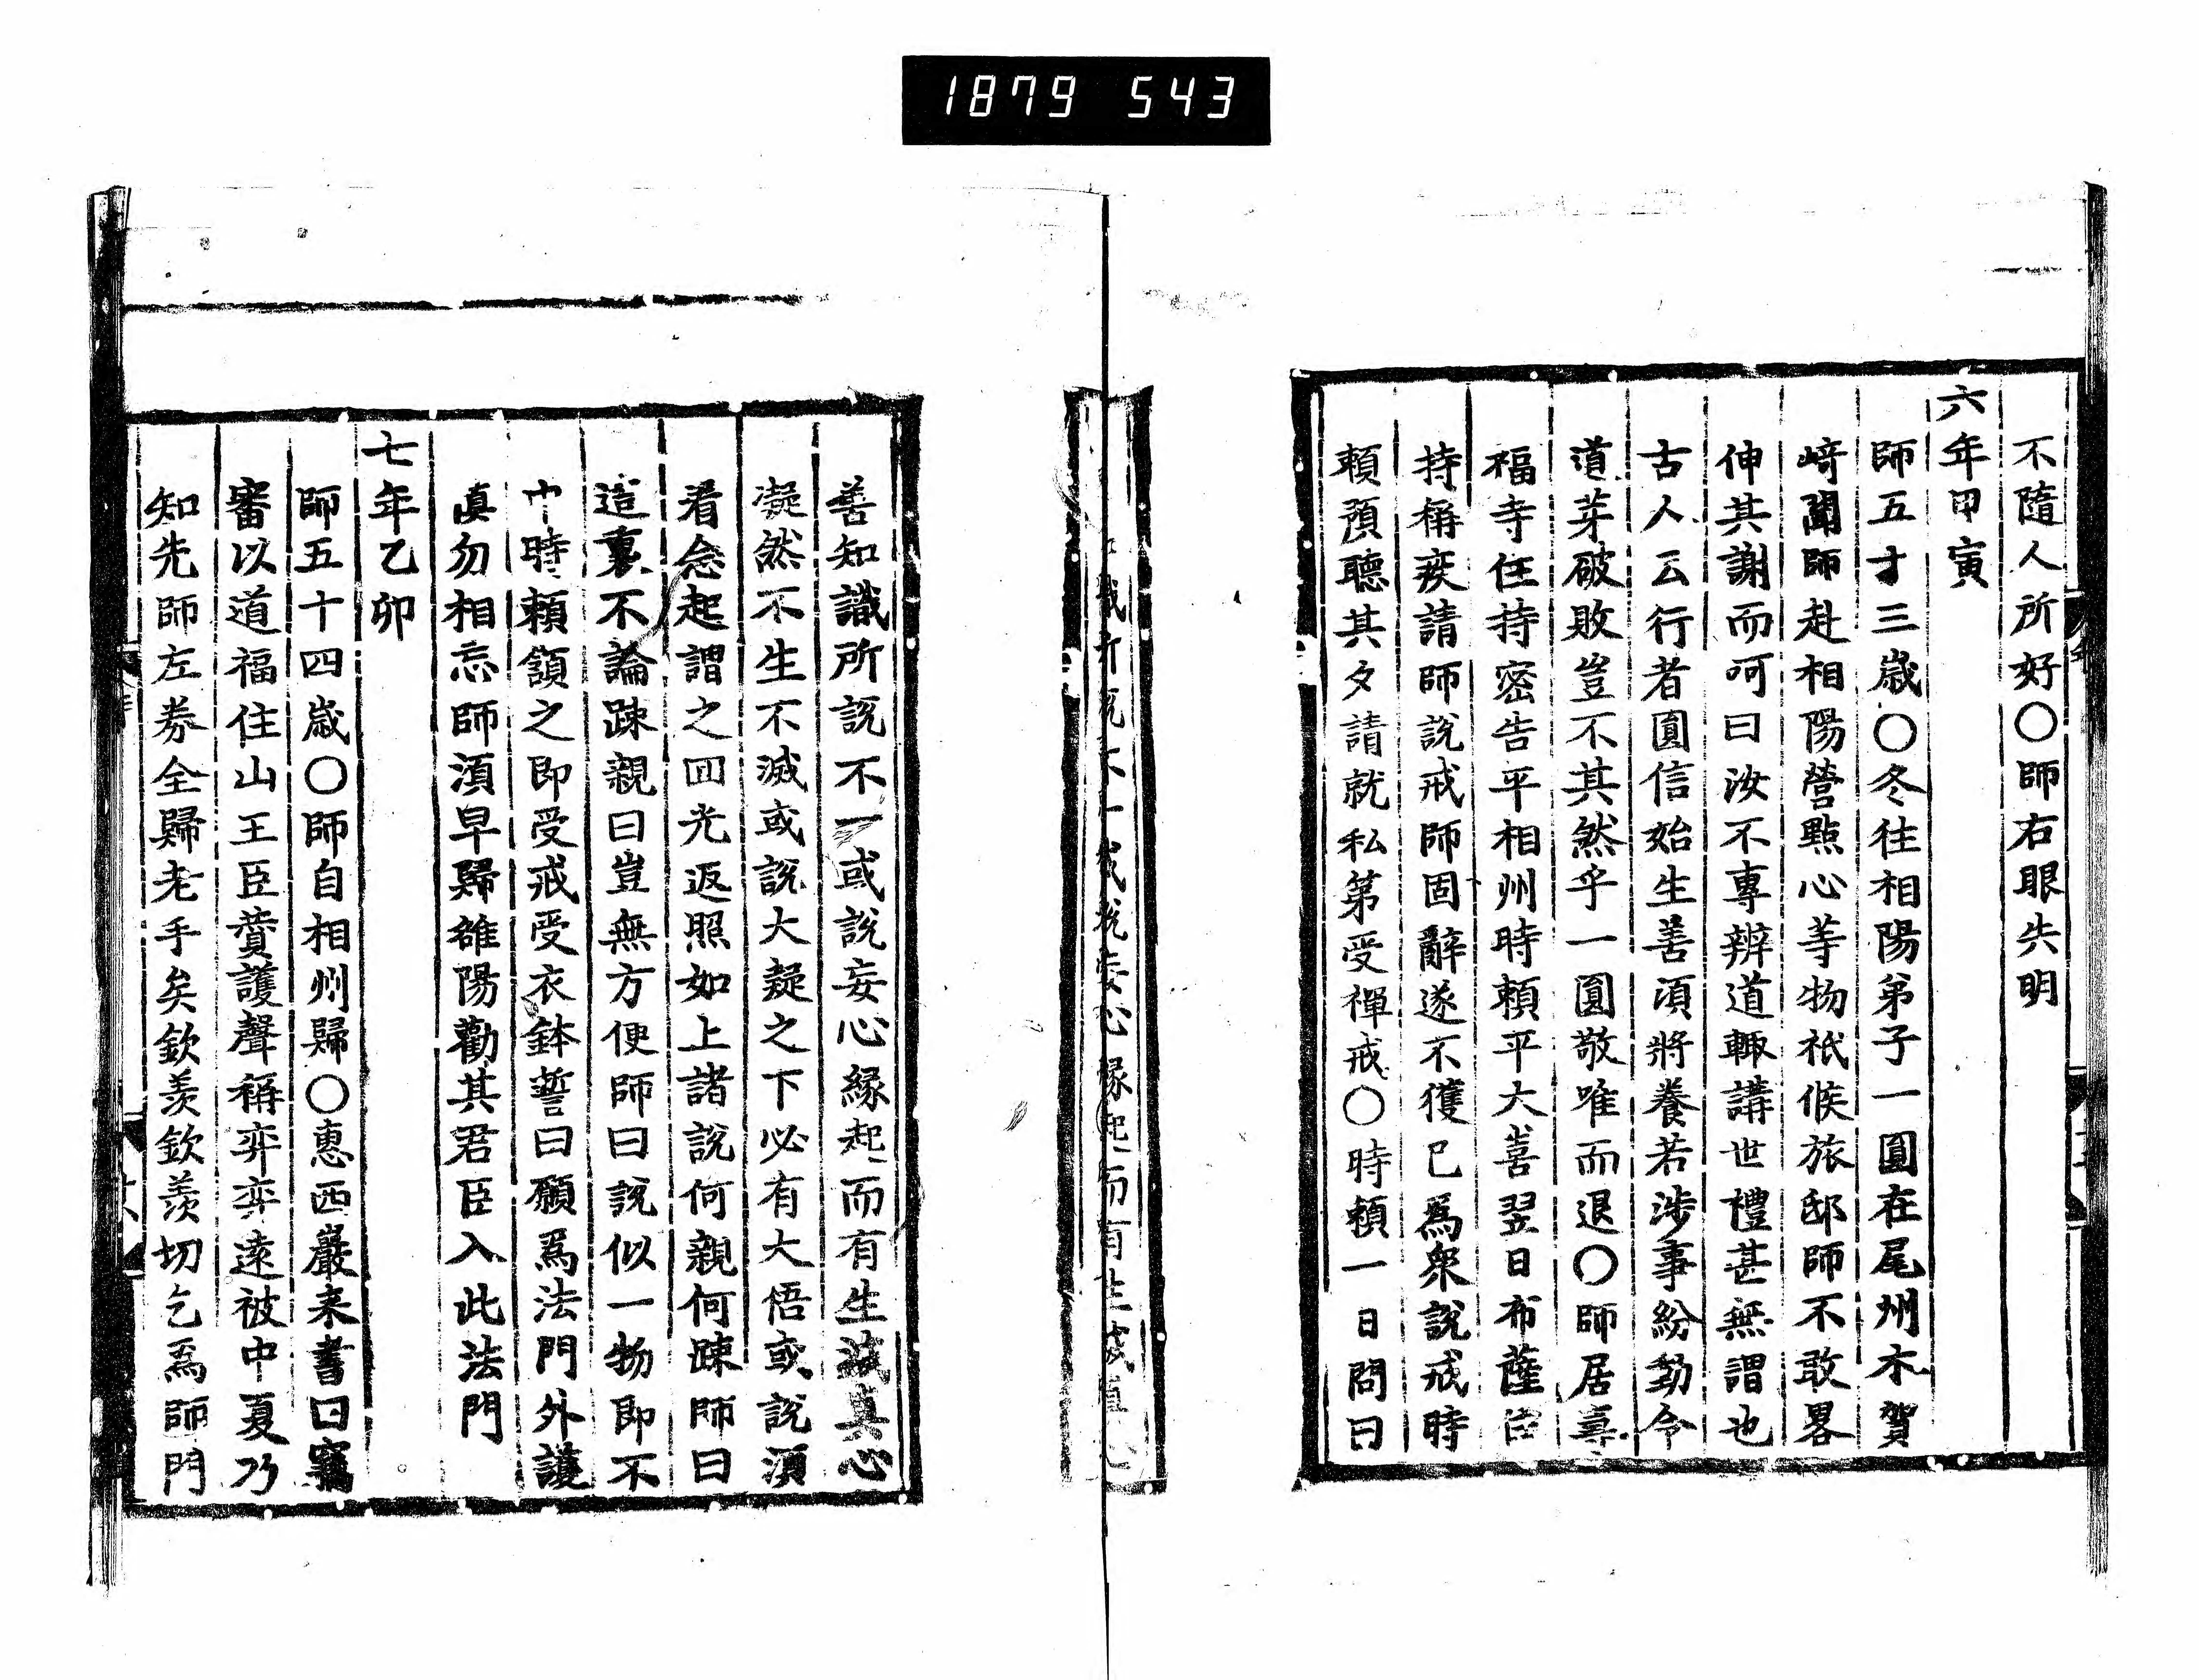 1879 543
不隨人所好〇師右眼失明
六年甲寅
師五十三歳〇冬往相陽弟子一圓在尾州木賀
﨑聞師赴相陽營㸃心等物祇候旅邸師不敢畧
伸其謝而呵曰汝不專辨道輙講世禮甚無謂也
古人云行者圓信始生善湏將養若涉事紛動令
道芽破敗豈不其然乎一圓敬唯而退〇師居壽
福寺住持密告平相州時頼平大喜翌日布薩
持稱疾請師説戒師固辭遂不獲已爲衆說戒時
頼預聽其夕請就私第受禪戒〇時頼一日問曰
善知識所説不一或說妄心緣起而有生滅真心
凝然不生不滅或説大疑之下必有大悟或說湏
看念起謂之囬光返照如上諸說何親何踈師曰
這裏不論踈親曰豈無方便師曰說似一物即不
中時頼頷之即受戒受衣鉢誓曰願爲法門外護
真勿相忘師湏早歸雒陽勸其君臣入此法門
七年乙卯
師五十四歳〇師自相州歸〇惠西巖来書曰竊
審以道福住山王臣賛護聲稱弈弈遠被中夏乃
知先師左券全歸老手矣欽羨欽羨切乞爲師門